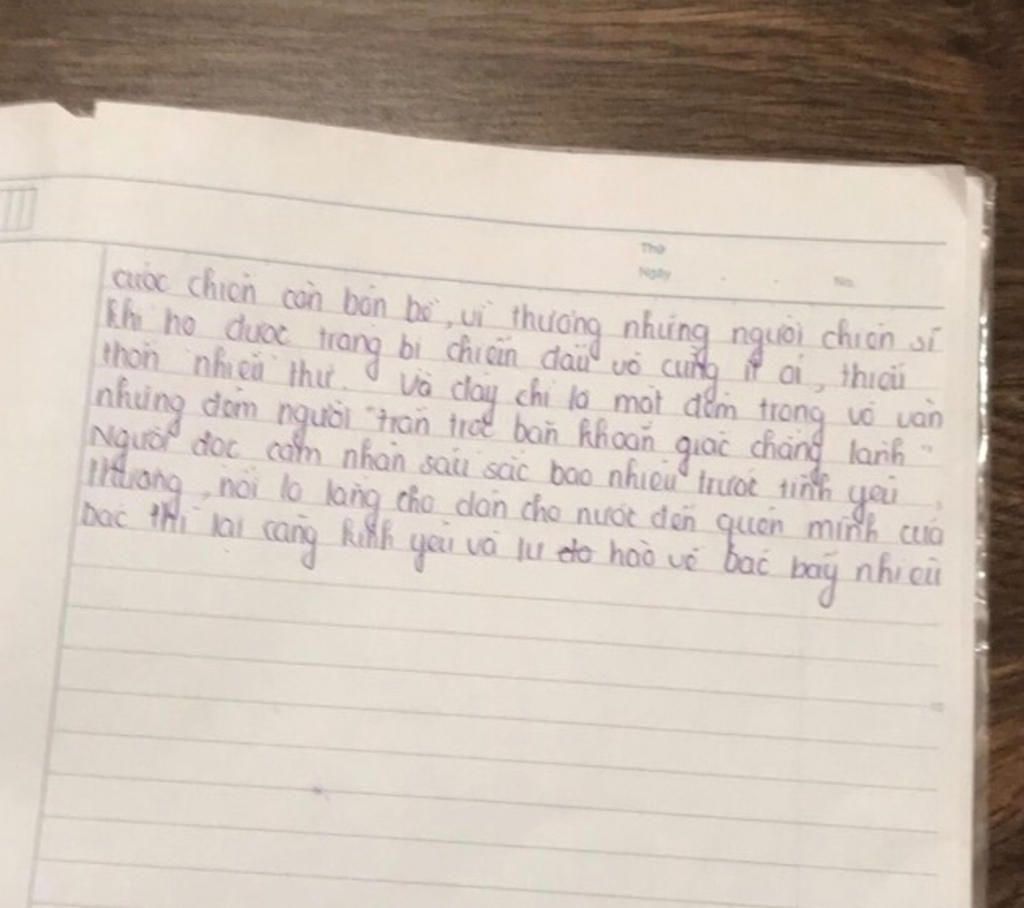 Thứ
Ngày
No.
cuộc chiến còn bộn bề, vì thương những người chiến sĩ
khi họ được trang bị chiến đấu vô cùng ít ỏi, thiếu
thốn nhiều thứ. Và đây chỉ là một đêm trong vô vàn
những đêm người "trằn trọc băn khoăn giấc chẳng lành"
Người đọc cảm nhận sâu sắc bao nhiêu trước tình yêu,
thương, nỗi lo lắng cho dân cho nước đến quên mình của
bác thì lại càng kính yêu và tự hào về bác bấy nhiêu